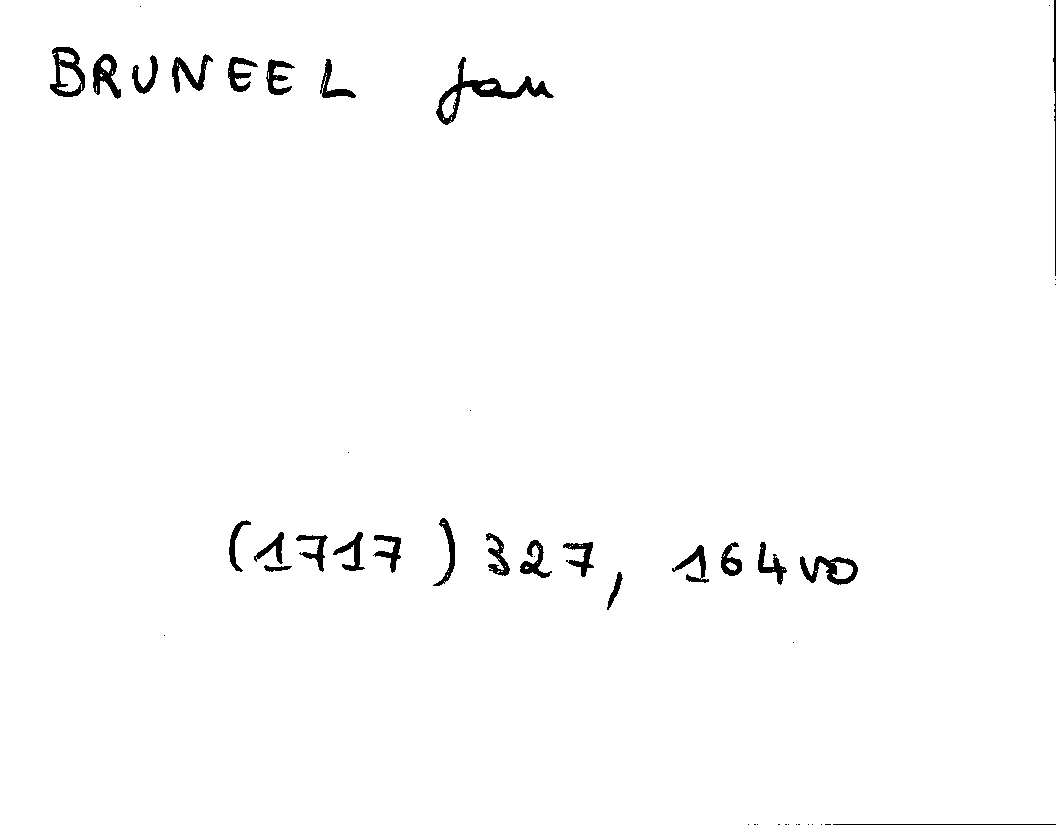 BRUNEEL Jan
(1717) 327, 164vo